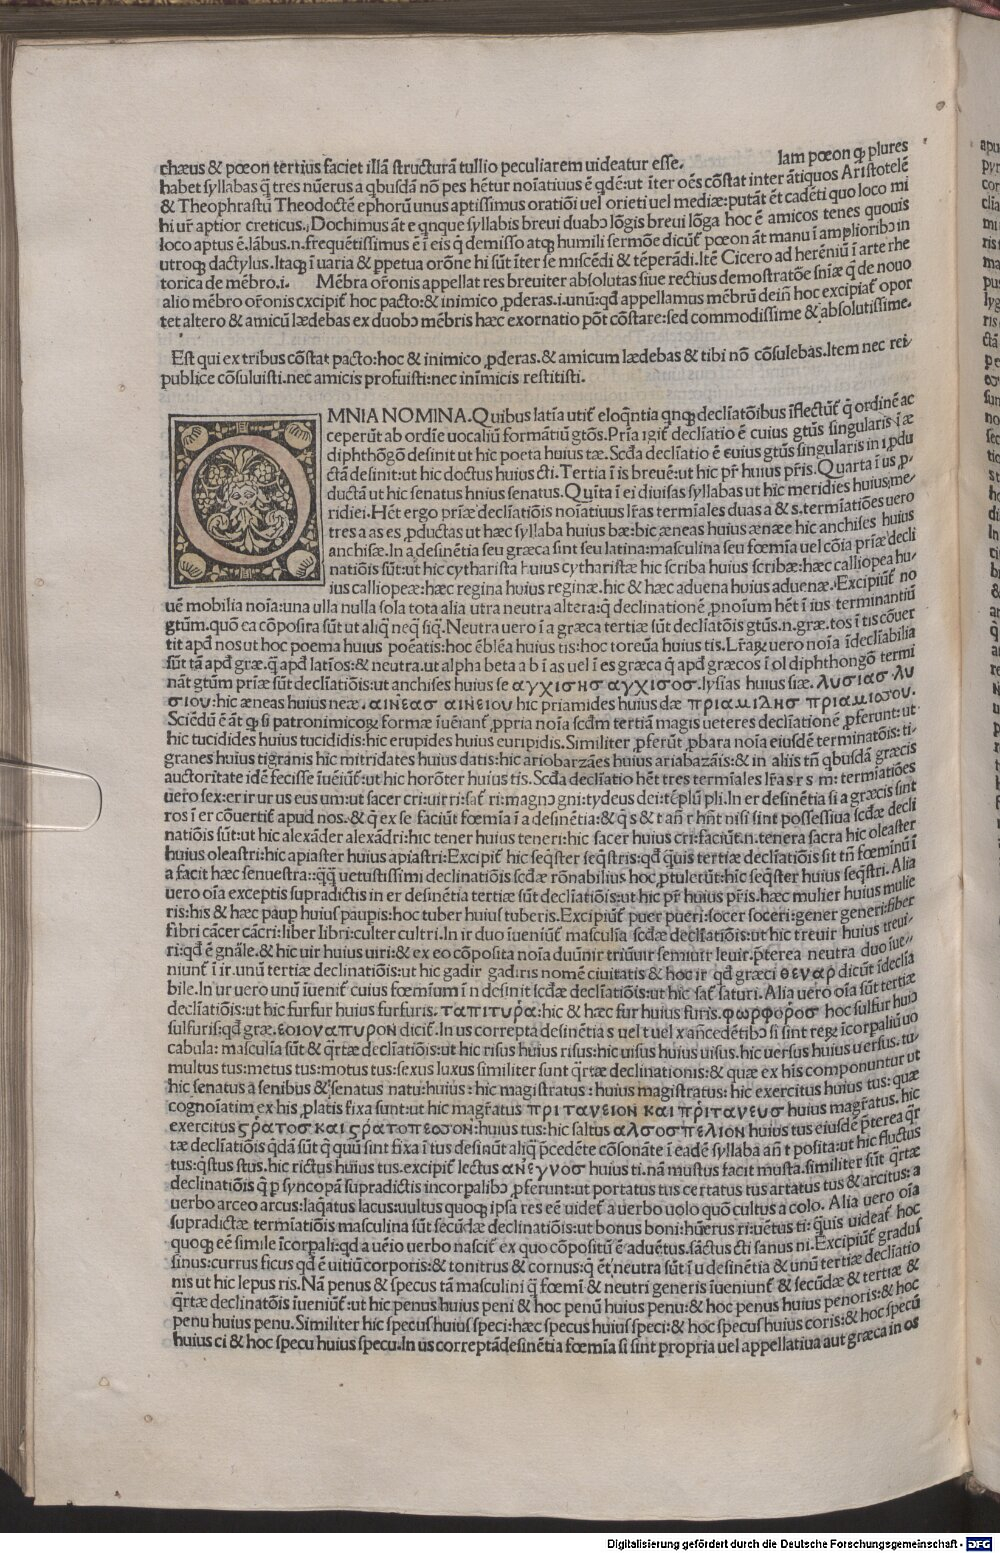 chæus & pœon tertius faciet illā structurā tullio peculiarem uideatur esse. Iam pœon qꝫ plures
habet syllabas q̄ tres nūerus a qbusdā nō pes hētur noīatiuus ē qdē:ut īter oēs cōstat inter ātiquos Aristotelē
& Theophrastū Theodoctē ephorū unus aptissimus oratiōi uel orieti uel mediæ:putāt ēt cadēti quo loco mi
hi ur̄ aptior creticus. Dochimus āt e qnque syllabis breui duabꝰ lōgis breui lōga hoc ē amicos tenes quouis
loco aptus ē.lābus.n.frequētissimus ē ī eis q̄ demisso atqꝫ humili sermōe dicūt̄ pœon āt manu ī amplioribꝰ in
utroqꝫ dactylus. Itaqꝫ ī uaria & ꝑpetua orōne hi sūt īter se miscēdi & tēperādi. Itē Cicero ad herēniū ī arte rhe
torica de mēbro.i. Mēbra or̄onis appellat res breuiter absolutas siue rectius demostratōe sniæ q̄ de nouo
alio mēbro or̄onis excipit̄ hoc pacto:& inimico ꝓderas.i.unū:qd̄ appellamus mēbrū deīn hoc excipiat̄ opor
tet altero & amicū lædebas ex duobꝰ mēbris hæc exornatio pōt cōstare:sed commodissime & absolutissime.
Est qui ex tribus cōstat pacto:hoc & inimico ꝓderas.& amicum lædebas & tibi nō cōsulebas.Item nec rei
publice cōsuluisti.nec amicis profuisti:nec inīmicis restitisti.
OMNIA NOMINA. Quibus latīa utit̄ eloqn̄tia qnqꝫ decliatōibus īflectūt̄ q̄ ordinē ac
ceperūt ab ordīe uocaliū formātiū gtōs. Prīa igit̄ decliatio ē cuius gtūs singularis ī æ
diphthōgō desinit ut hic poeta huius tæ. Scđa decliatio ē euius gtūs singularis in i ꝓdu
ctā desinit:ut hic doctus huius cti. Tertia ī is breuē:ut hic pr̄ huius pr̄is. Quarta ī us ꝓ
ductā ut hic senatus hnius senatus. Quīta ī ei diuisas syllabas ut hic meridies huius me
ridiei. Hēt ergo prīæ decliatiōis noīatiuus lr̄as termīales duas a & s.termīatiōes uero
tres a as es ꝓductas ut hæc syllaba huius bæ:hic æneas huius ænæe hic anchises huius
anchisæ.In a desinētia seu græca sint seu latina:masculina seu fœmīa uel cōia prīæ decli
natiōis sūt:ut hic cytharista huius cytharistæ hic scriba huius scribæ:hæc calliopea hu
ius calliopeæ:hæc regina huius reginæ.hic & hæc aduena huius aduenæ. Excipiūt̄ no
uē mobilia noīa:una ulla nulla sola tota alia utra neutra altera:q̄ declinationē ꝓnoīum hēt ī ius terminantiū
gtūm.quō ea cōposita sūt ut aliq̄ neq̄ siq̄. Neutra uero ī a græca tertiæ sūt decliatōis gtūs.n.græ.tos ī tis cōuer
tit apđ nos ut hoc poema huius poēatis:hoc ēblēa huius tis:hoc toreūa huius tis. Lr̄aꝝ uero noīa īdecliabilia
sūt tā apđ græ.q̄ apđ latīos:& neutra.ut alpha beta a b ī as uel ī es græca q̄ apđ græcos ī ol diphthongō termi
nāt gtūm prīæ sūt decliatiōis:ut anchises huius se αγχισης αγχισοσ.lysias huius siæ. λυσιασ λυ
σιου:hic æneas huius neæ. αινεασ αινειου hic priamides huius dæ πριαμιδης πριαμιδου.
Sciēdū ē āt qꝫ si patronimicoꝝ formæ īuēiant̄ ꝓpria noīa scđm tertiā magis ueteres decliationē ꝓferunt:ut
hic tucidides huius tucididis:hic erupides huius euripidis. Similiter ꝓferūt ꝓbara noīa eiusdē terminatōis:ti
granes huius tigranis hic mitridates huius datis:hic ariobarzāes huius ariabazāis:& in aliis tn̄ qbusdā græcis
auctoritate idē fecisse īuēiūt̄:ut hic horōter huius tis. Scđa decliatio hēt tres termīales lr̄as r s m: termiatiōes
uero sex:er ir ur us eus um:ut sacer cri:uir ri:sat̄ ri:magnꝰ gni:tydeus dei:tēplū pli.In er desinētia si a græcis sint
ros ī er cōuertit̄ apud nos.& q̄ ex se faciūt fœmīa ī a desinētia:& q̄ s & t an̄ r hn̄t nisi sint possessiua scđæ decli
natiōis sūt:ut hic alexāder alexādri:hic tener huius teneri:hic sacer huius cri:faciūt.n.tenera sacra hic oleaster
huius oleastri:hic apiaster huius apiastri:Excipit̄ hic seqster seqstris:qđ quis tertiæ decliatiōis sit tn̄ fœminū ī
a facit hæc senuestra::q̄q̄ uetustissimi declinatiōis scđæ rōnabilius hoc ꝓtulerūt:hic seqster huius seqstri. Alia
uero oīa exceptis supradictis in er desinētia tertiæ sūt decliatiōis:ut hic pr̄ huius pr̄is.hæc mulier huius mulie
ris:his & hæc paup huius paupis:hoc tuber huius tuberis. Excipiūt̄ puer pueri:socer soceri:gener generi:fiber
fibri cācer cācri:liber libri:culter cultri. In ir duo īueniūt̄ masculīa scđæ decliatiōis:ut hic treuir huius treui
ri:qđ ē gnāle.& hic uir huius uiri:& ex eo cōposita noīa duūuir triūuir semiuir leuir.p̄terea neutra duo īue
niunt̄ ī ir.unū tertiæ declinatiōis:ut hic gadir gadiris nomē ciuitatis & hoc ir qđ græci θεναρ dicūt īdeclīa
bile.In ur uero unū īuenit̄ cuius fœmīum ī n desinit scđæ decliatiōis:ut hic sat̄ saturi. Alia uero oīa sūt tertiæ
decliatiōis:ut hic furfur huius furfuris. ταπιτυρα:hic & hæc fur huius furis. φωρφοροσ hoc sulfur huiꝰ
sulfuris:qđ græ.εοιοναπυρον dicit̄. In us correpta desinētia s uel t uel x an̄cedētibꝰ si sint reꝝ īcorpaliū uo
cabula: masculīa sūt & q̄rtæ decliatiōis:ut hic risus huius risus:hic uisus huius uisus.hic uersus huius uersus.tu
multus tus:metus tus:motus tus:sexus luxus similiter sunt q̄rtæ declinationis:& quæ ex his componuntur ut
hic senatus a senibus & senatus natu:huius : hic magistratus : huius magistratus: hic exercitus huius tus: quæ
cognoīatim ex his ꝓlatis fixa sunt:ut hic magr̄atus πριτανειον και πριτανευσ huius magr̄atus.hic
exercitus ϛρατοσ και ϛρατοπεσον:huius tus:hic saltus αλσοσπελιον huius tus eiusdē p̄terea q̄r
tæ decliatiōis q̄dā sūt q̄ quū sint fixa ī tus desinūt aliq̄ p̄cedēte cōsonāte ī eadē syllaba an̄ t posita:ut hic fluctus
tus:q̄stus stus.hic rictus huius tus.excipit̄ lectus ανεγνοσ huius ti.nā mustus facit musta.similiter sūt q̄rtæ
declinatiōis q̄ p syncopā supradictis incorpalibꝰ ꝓferunt:ut portatus tus certatus tus artatus tus & arcitus: a
uerbo arceo arcus:laq̄atus lacus:uultus quoqꝫ ipsa res eē uidet̄ a uerbo uolo quō cultus a colo. Alia uero oīa
supradictæ termīatiōis masculina sūt secūdæ declinatiōis:ut bonus boni:hūerus ri:uētus ti: quis uideat̄ hoc
quoqꝫ eē simile īcorpali:qd a uēio uerbo nascit̄ ex quo cōpositū ē aduētus.sāctus cti sanus ni. Excipiūt̄ gradus
sinus:currus ficus qđ ē uitiū corporis:& tonitrus & cornus:q̄ ēt neutra sūt ī u desinētia & unū tertiæ decliatio
nis ut hic lepus ris. Nā penus & specus tā masculini q̄ fœmī & neutri generis īueniunt̄ & secūdæ & tertiæ &
q̄rtæ declinatōis īueniūt̄:ut hic penus huius peni & hoc penū huius penu:& hoc penus huius penoris:& hoc
penu huius penu. Similiter hic specus huius speci:hæc specus huius speci:& hoc specus huius coris:& hoc specū
huius ci & hoc specu huius specu.In us correptādesinētia fœmīa si sint propria uel appellatiua aut græca in os
Digitalisierung gefördert durch die Deutsche Forschungsgemeinschaft - DFG